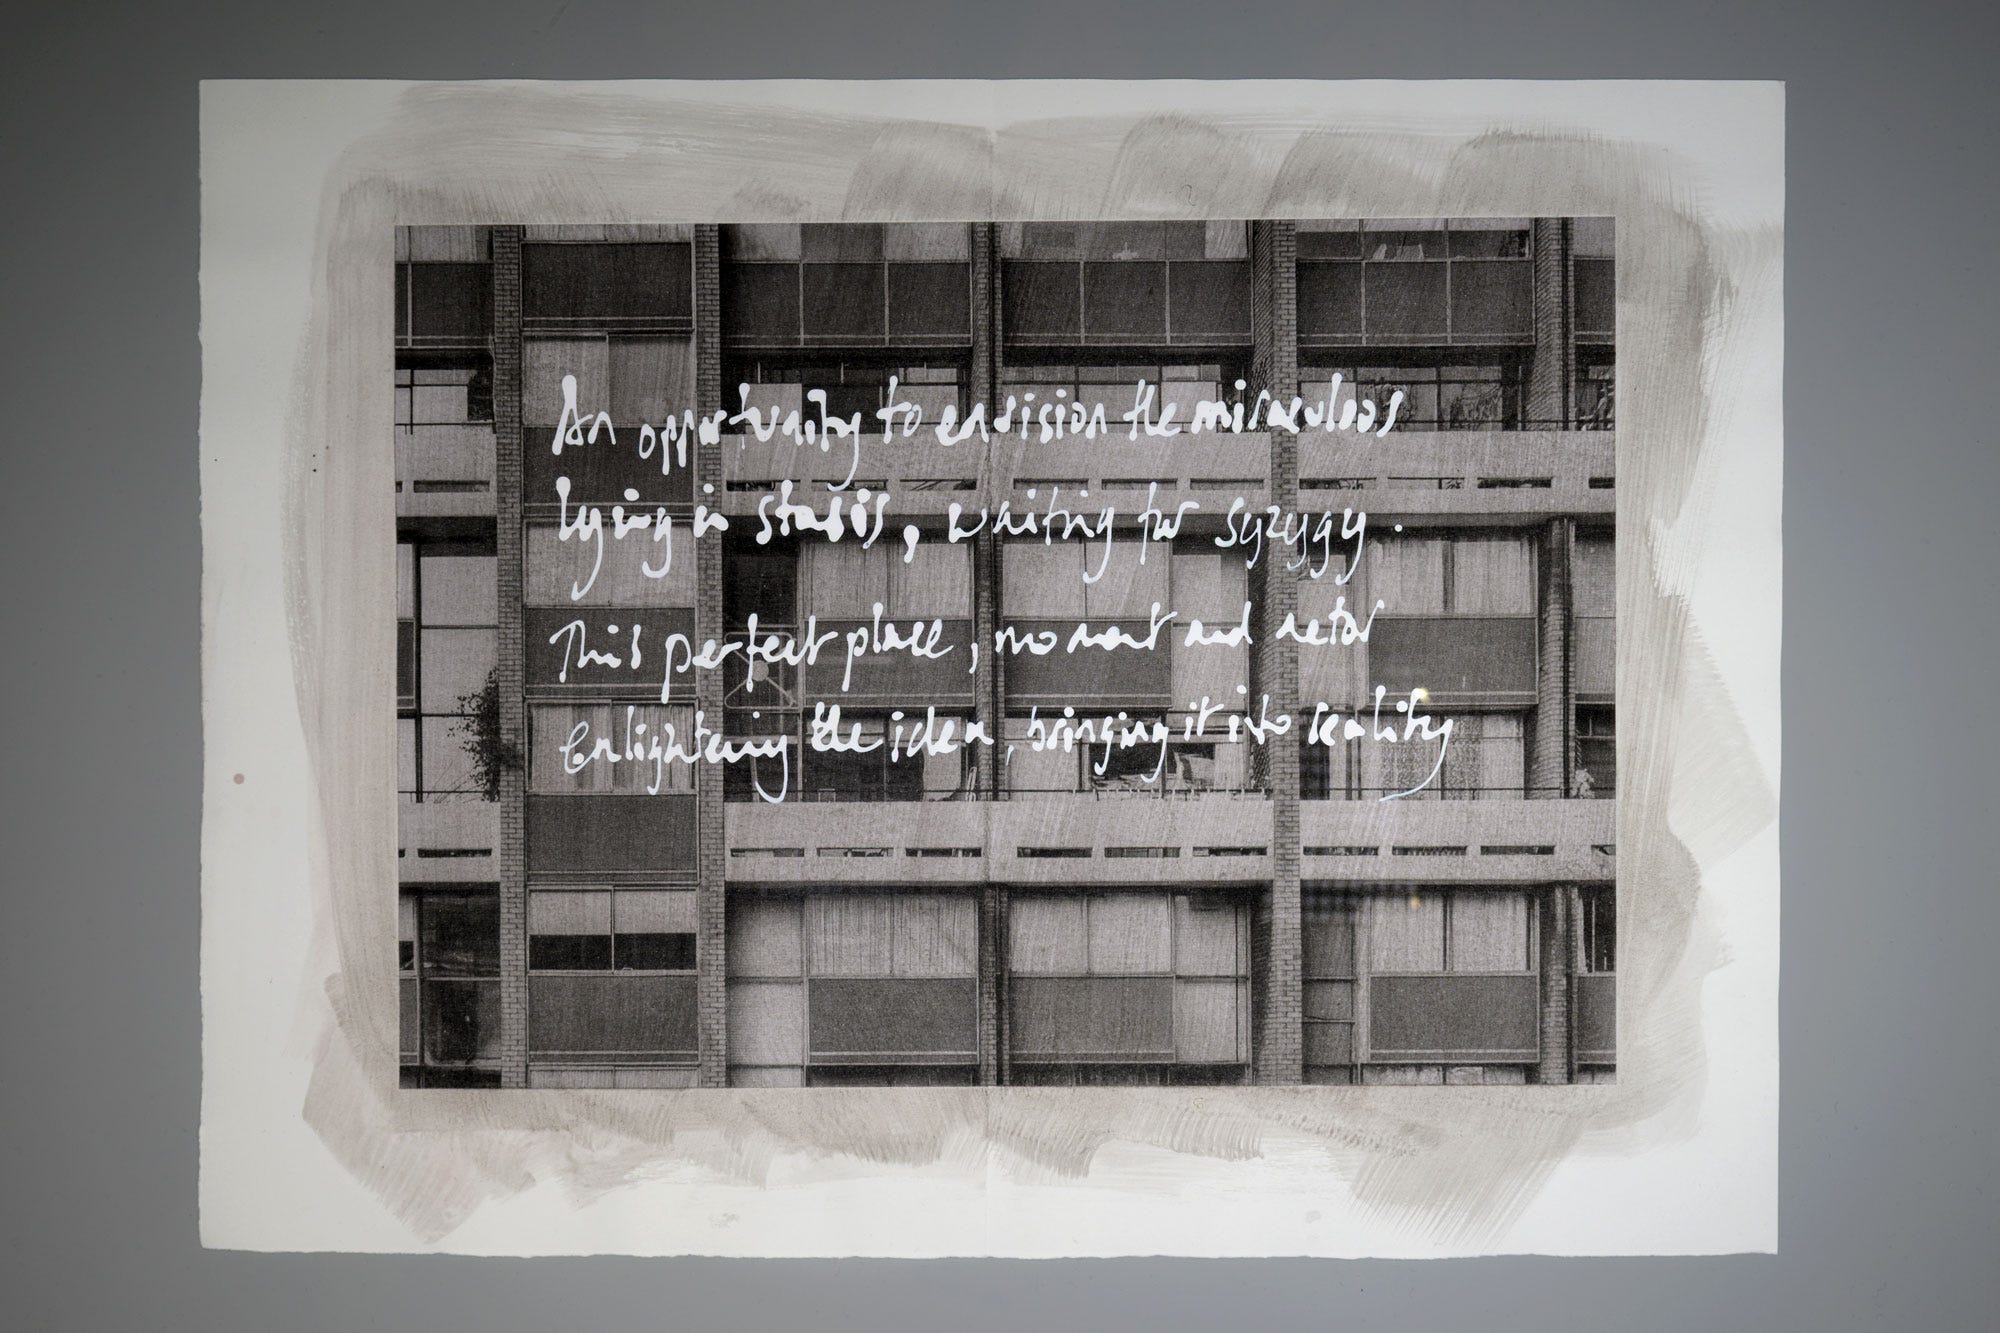 An opportunity to envision the miraculous
lying in stasis, waiting for syzygy.
This perfect place, moment and actor
enlightening the idea, bringing it into reality